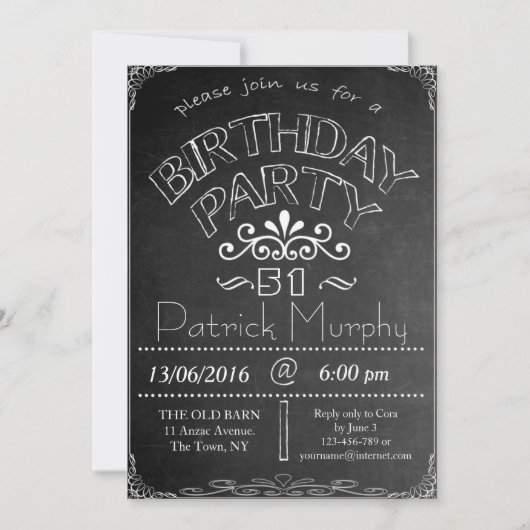 please join us for a
BIRTHDAY
PARTY
~ 51 ~
Patrick Murphy
13/06/2016 @ 6:00 pm
THE OLD BARN
11 Anzac Avenue.
The Town, NY
Reply only to Cora
by June 3
123-456-789 or
yourname@internet.com